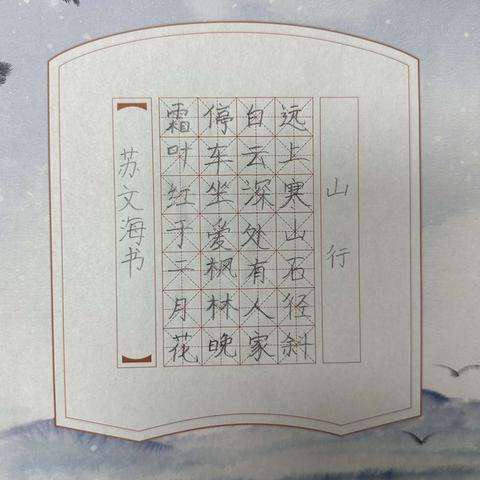 山行
远上寒山石径斜
白云深处有人家
停车坐爱枫林晚
霜叶红于二月花
苏文海书